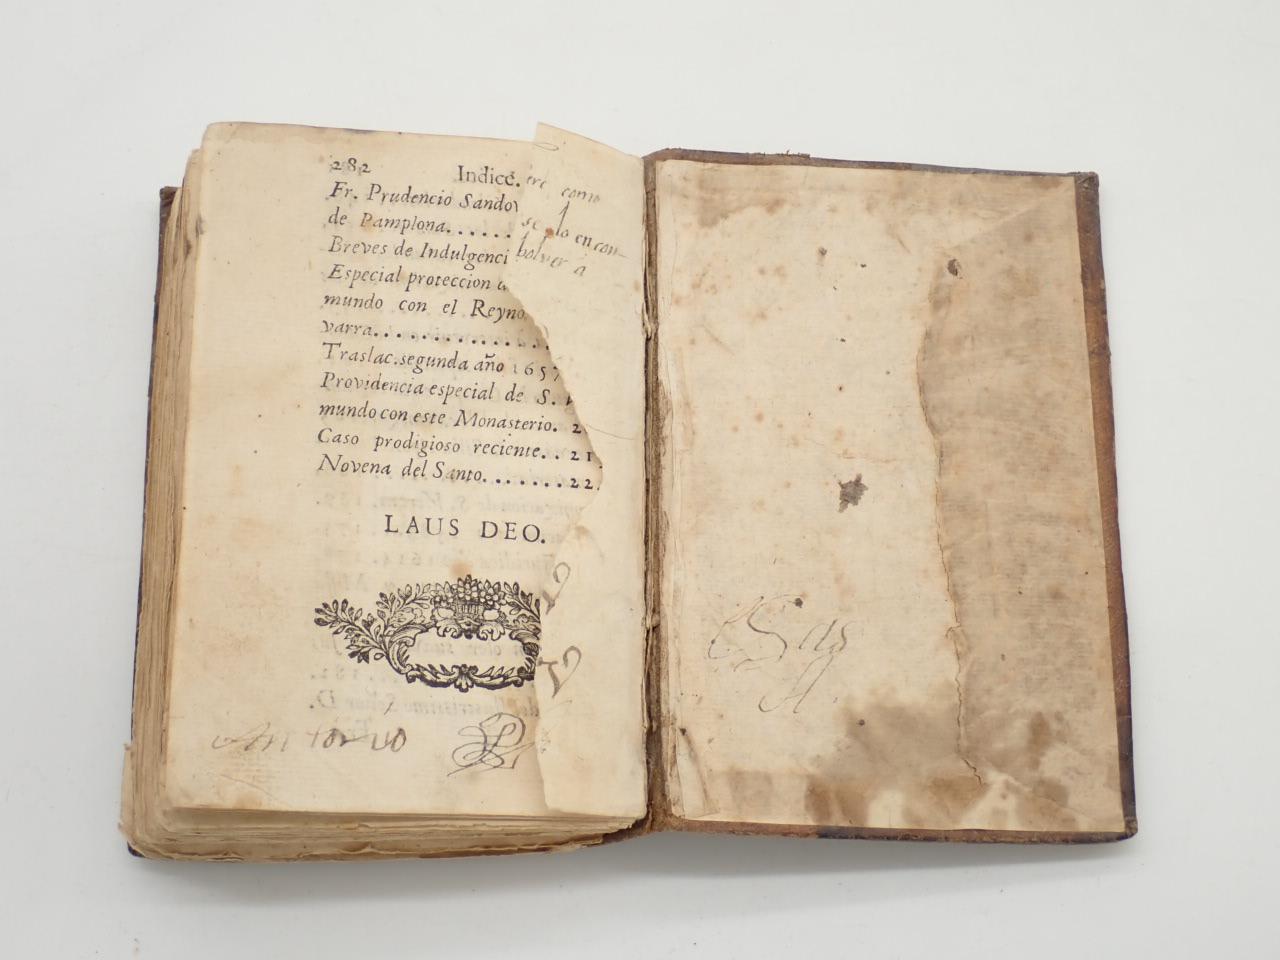 282 Indice.
Fr. Prudencio Sando
de Pamplona......
Breves de Indulgenci
Especial proteccion
mundo con el Reyno
varra............
Traslac. segunda año 1657
Providencia especial de S.
mundo con este Monasterio. 2
Caso prodigioso reciente.. 21
Novena del Santo....... 22.
LAUS DEO.
Antonio
como
se lo encon-
bolver a